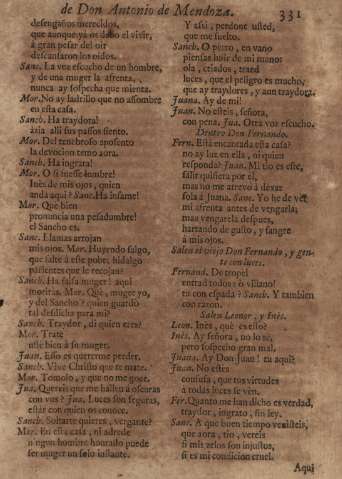 de Don Antonio de Mendoza. 331
desengaños merecidos,
que aunque ya os debo el vivir,
à gran pesar del oir
descantaron los oidos.
Sanc. La voz escucho de un hombre,
y de una muger la afrenta,
nunca ay sospecha que mienta.
Mor. No ay ladrillo que no assombre
en esta casa.
Sanch. Ha traydora!
àzia alli sus passos siento.
Mor. Del tenebroso aposento
la devocion temo aora.
Sanch. Ha ingrata!
Mor. O si fuesse lombre!
Inès de mis ojos, quien
anda aqui? Sanc. Ha infame!
Mor. Que bien
pronuncia una pesadumbre!
el Sancho es.
Sanc. Llamas arrojan
mis ojos. Mor. Huyendo salgo,
que falte à este pobre hidalgo
parientes que le recojan?
Sanch. Ha falsa muger! aqui
moriràs. Mor. Què, muger yo,
y del Sancho? quien guardò
tal desdicha para mi?
Sanch. Traydor, di quien eres?
Mor. Trate
uste bien à su muger.
Juan. Esso es quererme perder.
Sanch. Vive Christo que te mate.
Mor. Tomolo, y que no me goce.
Jua. Quereis que me halle yo à obscuras
con vos? Jua. Luces son seguras,
estàs con quien os conoce.
Sanch. Soltarte quieres, vergante?
Mor. En esta casa, ni adrede
ningun hombre honrado puede
ser muger un solo instante.
Y assi, perdone usted,
que me suelto.
Sanch. O perro, en vano
piensas huir de mi mano
ola, criados, traed
luces, que el peligro es mucho,
que ay traydores, y aun traydora.
Juana. Ay de mi!
Juan. No esteis, señora,
con pena. Jua. Otra voz escucho.
Dentro Don Fernando.
Fern. Està encantada esta casa?
no ay luz en ella, ni quien
responda? Juan. Mi tio es este,
salir quisiera por el,
mas no me atrevo à dexar
sola à Juana. Sanc. Yo he de ver
mi afrenta antes de vengarla;
mas vengarela despues,
hartando de gusto, y sangre
à mis ojos.
Salen el viejo Don Fernando, y gente con luces.
Fernand. De tropel
entrad todos: ò villano!
tu con espada? Sanch. Y tambien
con razon.
Salen Leonor, y Inès.
Leon. Inès, què es esso?
Inès. Ay señora, no lo sè,
pero sospecho gran mal.
Juana. Ay Don Juan! tu aqui?
Juan. No estès
confusa, que tus virtudes
à todas luces se vèn.
Fer. Quanto me han dicho es verdad,
traydor, ingrato, sin ley.
Sanc. A que buen tiempo venisteis,
que aora, tio, vereis
si mis zelos son injustos,
si es mi condicion cruel.
Aqui